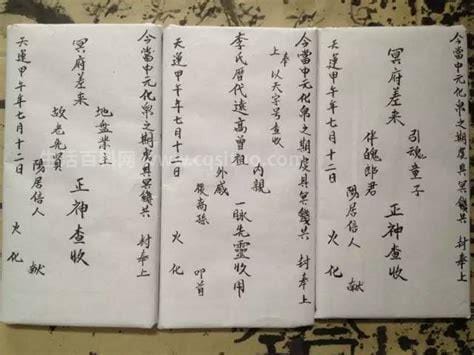 今當中元化帛之期虔具冥錢共 封奉上
引魂童子
冥府差来 正神查收
伴魄郎君
陽居信人 献
天運甲午年七月十二日 火化
今當中元化帛之期虔具冥錢共 封奉上
上奉 以天字号查收
內親
李氏歷代遠高曾祖 一脉先靈收用
外戚
裔孫 叩首
天運甲午年七月十二日 火化
今當中元化帛之期虔具冥錢共 封奉上
地盘業主
冥府差来 正神查收
故老先賢
陽居信人 献
天運甲午年七月十二日 火化